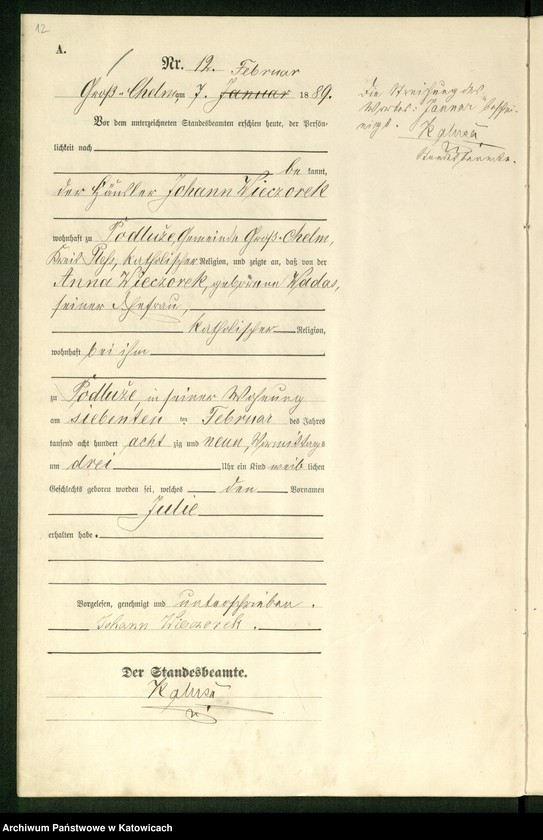 12
A.
Nr. 12.
Februar
Groß-Chelm am 7. Januar 1889.
Vor dem unterzeichneten Standesbeamten erschien heute, der Persön-
lichkeit nach
be kannt,
der Häusler Johann Wieczorek
wohnhaft zu Podluże, Gemeinde Groß-Chelm,
Kreis Pleß, katholischer Religion, und zeigte an, daß von der
Anna Wieczorek, geborenen Wadas,
seiner Ehefrau,
katholischer Religion,
wohnhaft bei ihm
zu Podluże, in seiner Wohnung
am siebenten ten Februar des Jahres
tausend acht hundert acht zig und neun, Vormittags
um drei Uhr ein Kind weib lichen
Geschlechts geboren worden sei, welches den Vornamen
Julie
erhalten habe.
Vorgelesen, genehmigt und unterschrieben.
Johann Wieczorek.
Der Standesbeamte.
Kalusa
Die Streichung des
Wortes: "Januar" beschei-
nigt.
Kalusa
Standesbeamte.
Archiwum Państwowe w Katowicach